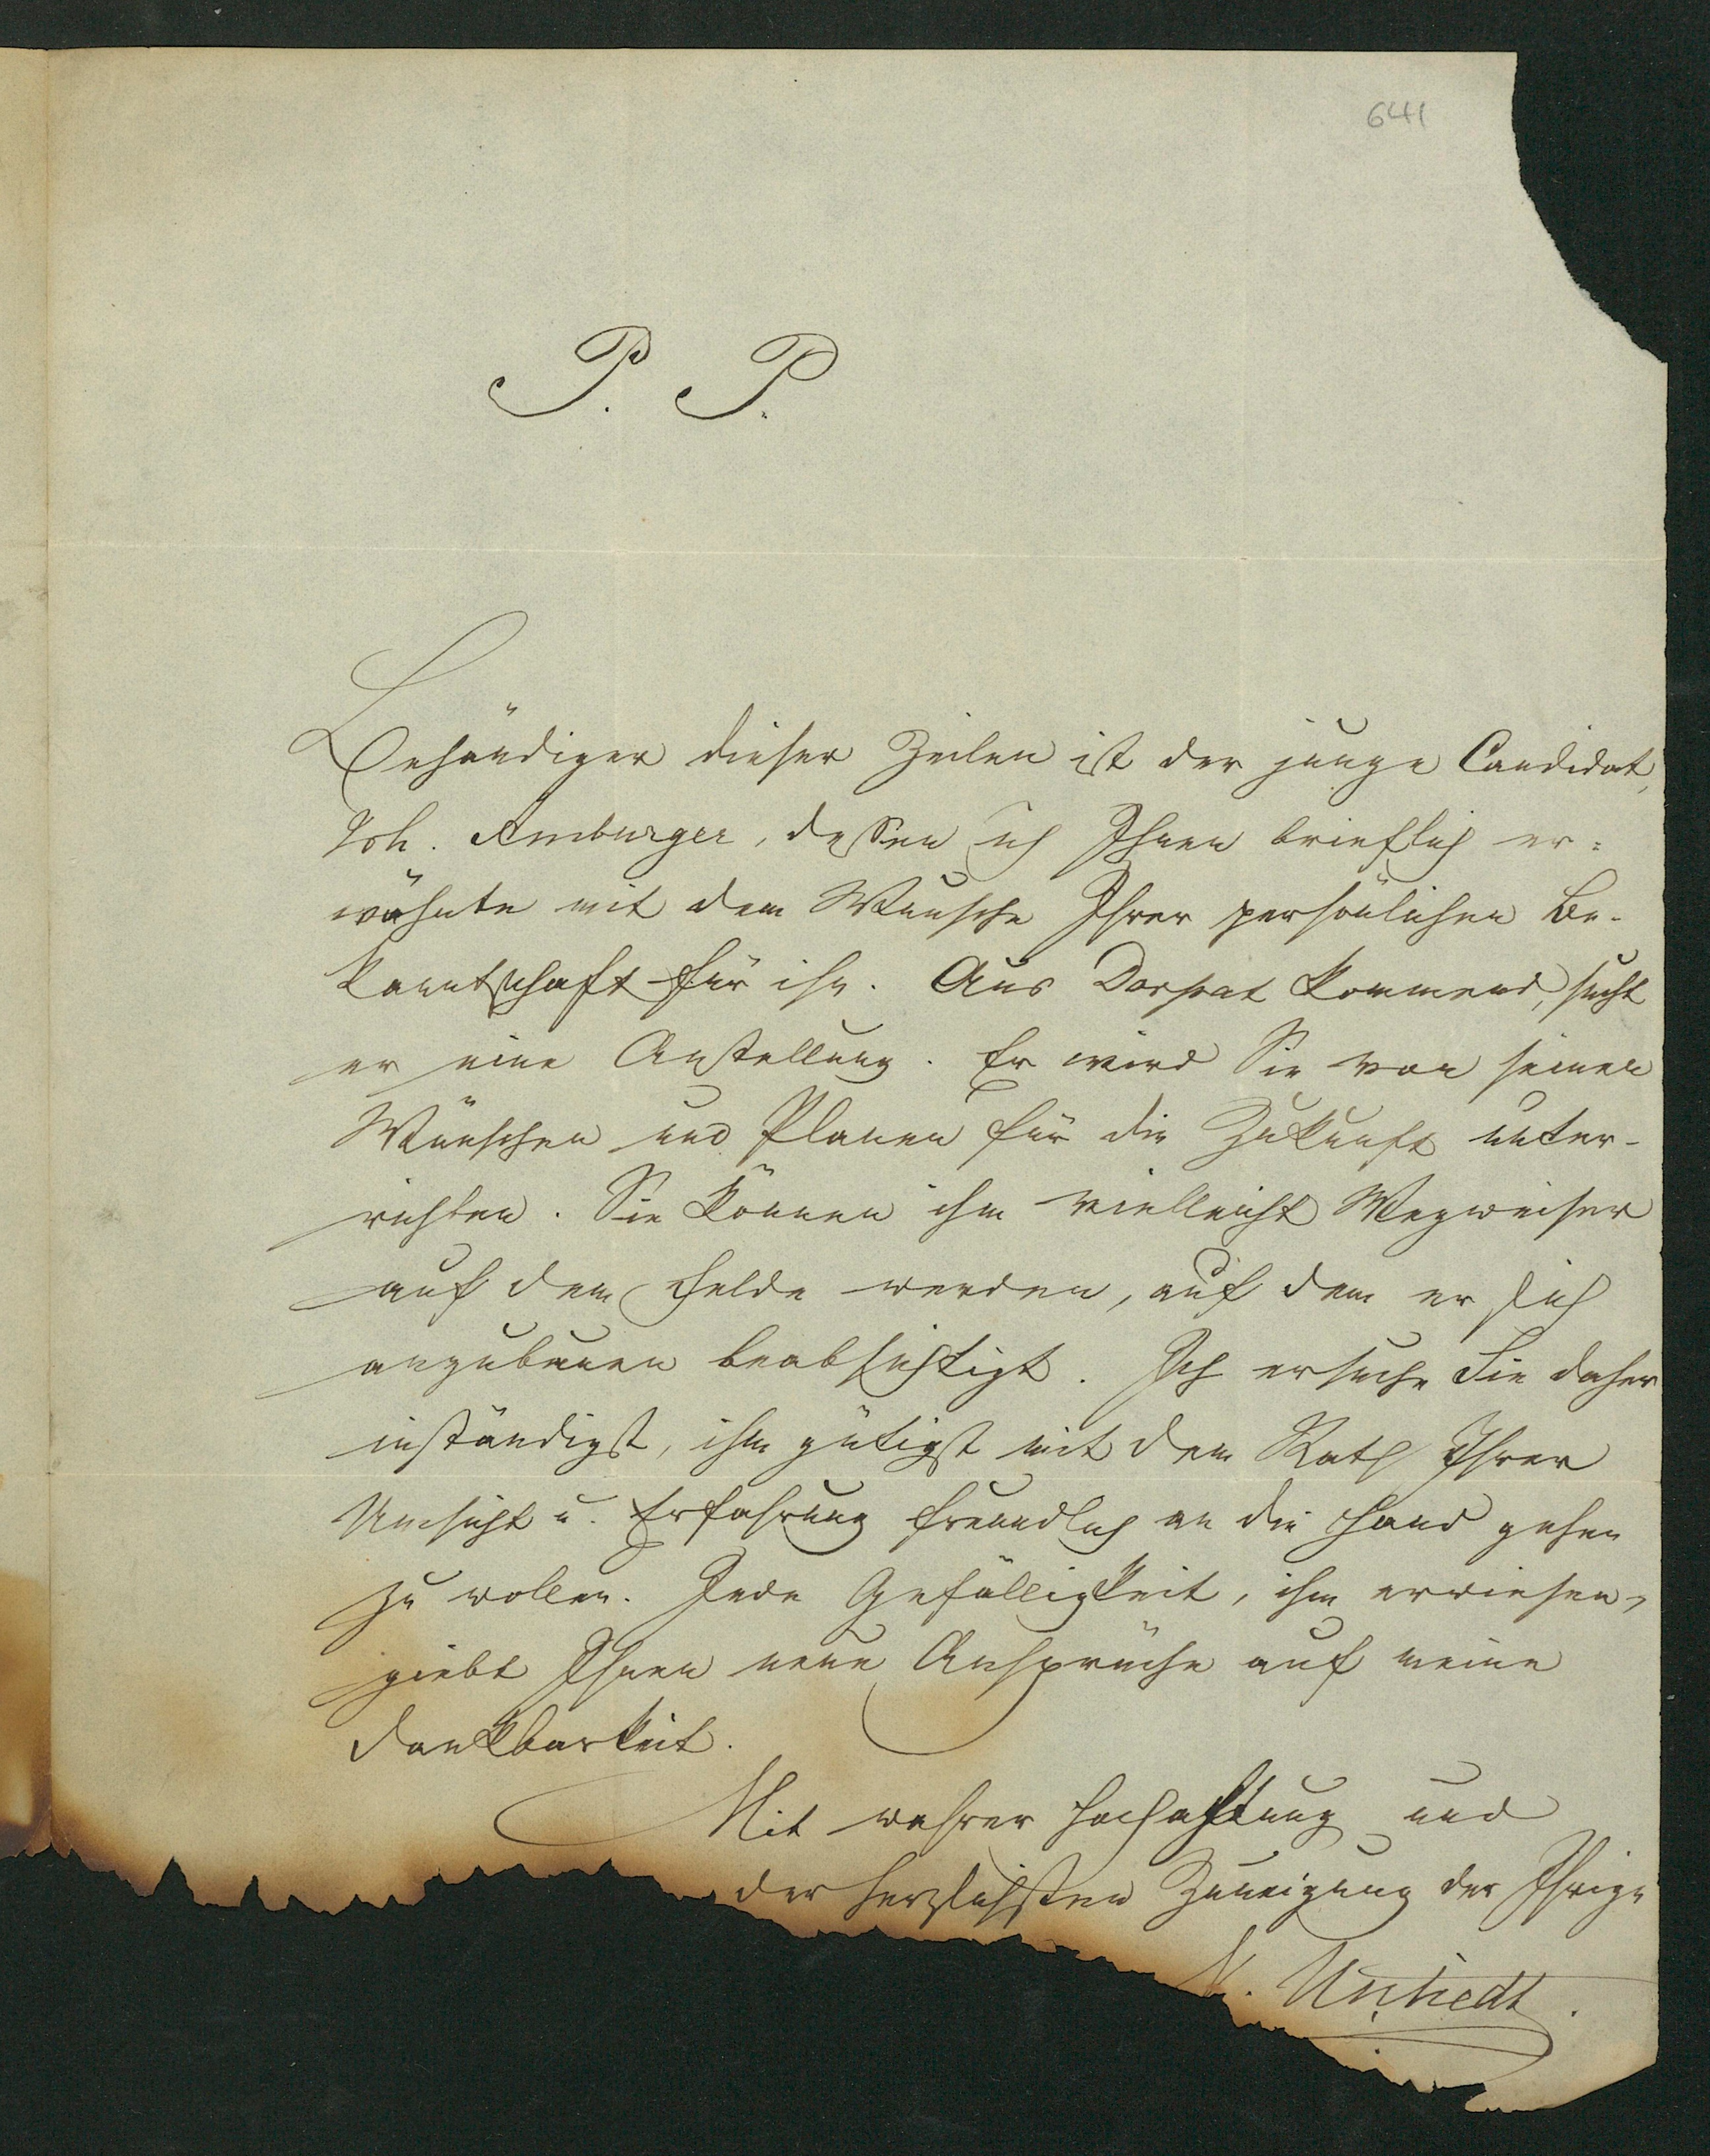 641
P. P.
Behändiger dieser Zeilen ist der junge Candidat,
Joh. Amburger, dessen ich Ihnen brieflich er=
wähnte mit dem Wunsche Ihrer persönlichen Be-
kanntschaft für ihn. Aus Dorpat kommend, sucht
er eine Anstellung. Er wird Sie von seinen
Wünschen und Planen für die Zukunft unter-
richten. Sie können ihm vielleicht Wegweiser
auf dem Felde werden, auf dem er sich
anzubauen beabsichtigt. Ich ersuche Sie daher
inständigst, ihm gütigst mit dem Rath Ihrer
Umsicht u. Erfahrung freundlich an die Hand gehen
zu wollen. Jede Gefälligkeit, ihm erwiesen,
giebt Ihnen neue Ansprüche auf meine
Dankbarkeit.
Mit wahrer Hochachtung und
der herzlichsten Zuneigung der Ihrige